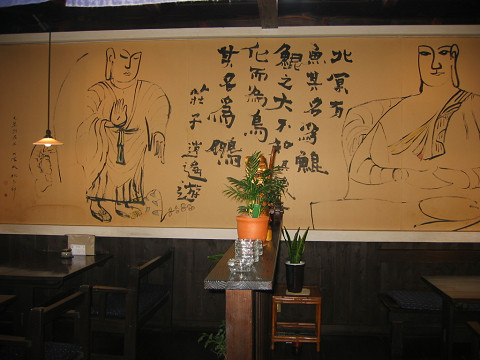 北冥有
魚其名為鯤
鯤之大不知
化而為鳥
其名為鵬
莊子 逍遙遊